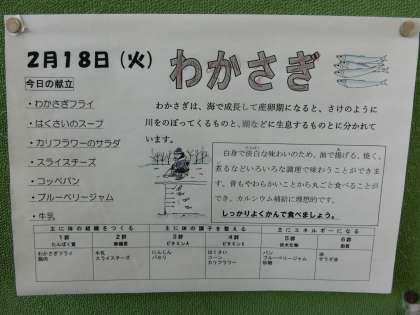 2月18日(火)
わかさぎ
今日の献立
・わかさぎフライ
・はくさいのスープ
・カリフラワーのサラダ
・スライスチーズ
・コッペパン
・ブルーベリージャム
・牛乳
わかさぎは、海で成長して産卵期になると、さけのように
川をのぼってくるものと、湖などに生息するものとに分かれて
います。
白身で淡白な味わいのため、油で揚げる、焼く、
煮るなどいろいろな調理で味わうことができま
す。骨もやわらかいことから丸ごと食べることが
でき、カルシウム補給に理想的です。
しっかりよくかんで食べましょう。
主に体の組織をつくる 主に体の調子を整える 主にエネルギーになる
1群 2群 3群 4群 5群 6群
たんぱく質 無機質 ビタミンA ビタミンC 炭水化物 脂質
わかさぎフライ 牛乳 にんじん はくさい パン 油
鶏肉 スライスチーズ パセリ コーン ブルーベリージャム サラダ油
カリフラワー 砂糖